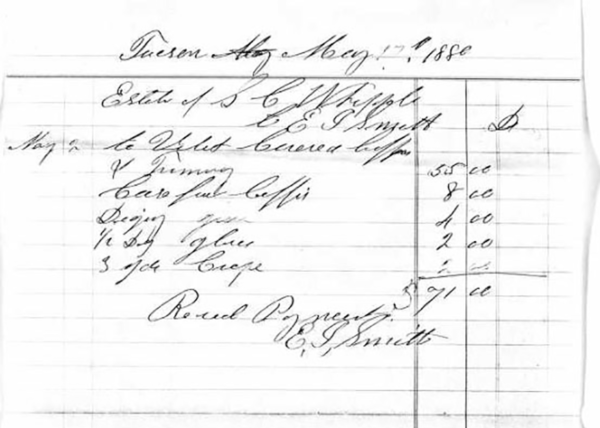 Tucson May 17th 1880
Estate of S C Whipple
to E J Smith Dr
May 2 to Velet Covered Coffin
& Triming 55 00
Case for Coffin 8 00
Diging grave 4 00
1/2 Dz gloves 2 00
3 yds Crape 2 00
$ 71 00
Recved Payment
E. J. Smith